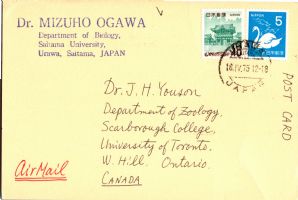 Dr. MIZUHO OGAWA
Department of Biology,
Saitama University,
Urawa, Saitama, JAPAN
日本郵便
NIPPON
5
18.IV.75 12-18
JAPAN
POST CARD
Dr. J. H. Youson
Department of Zoology,
Scarborough College,
University of Toronto.
W. Hill. Ontario.
CANADA
Air Mail